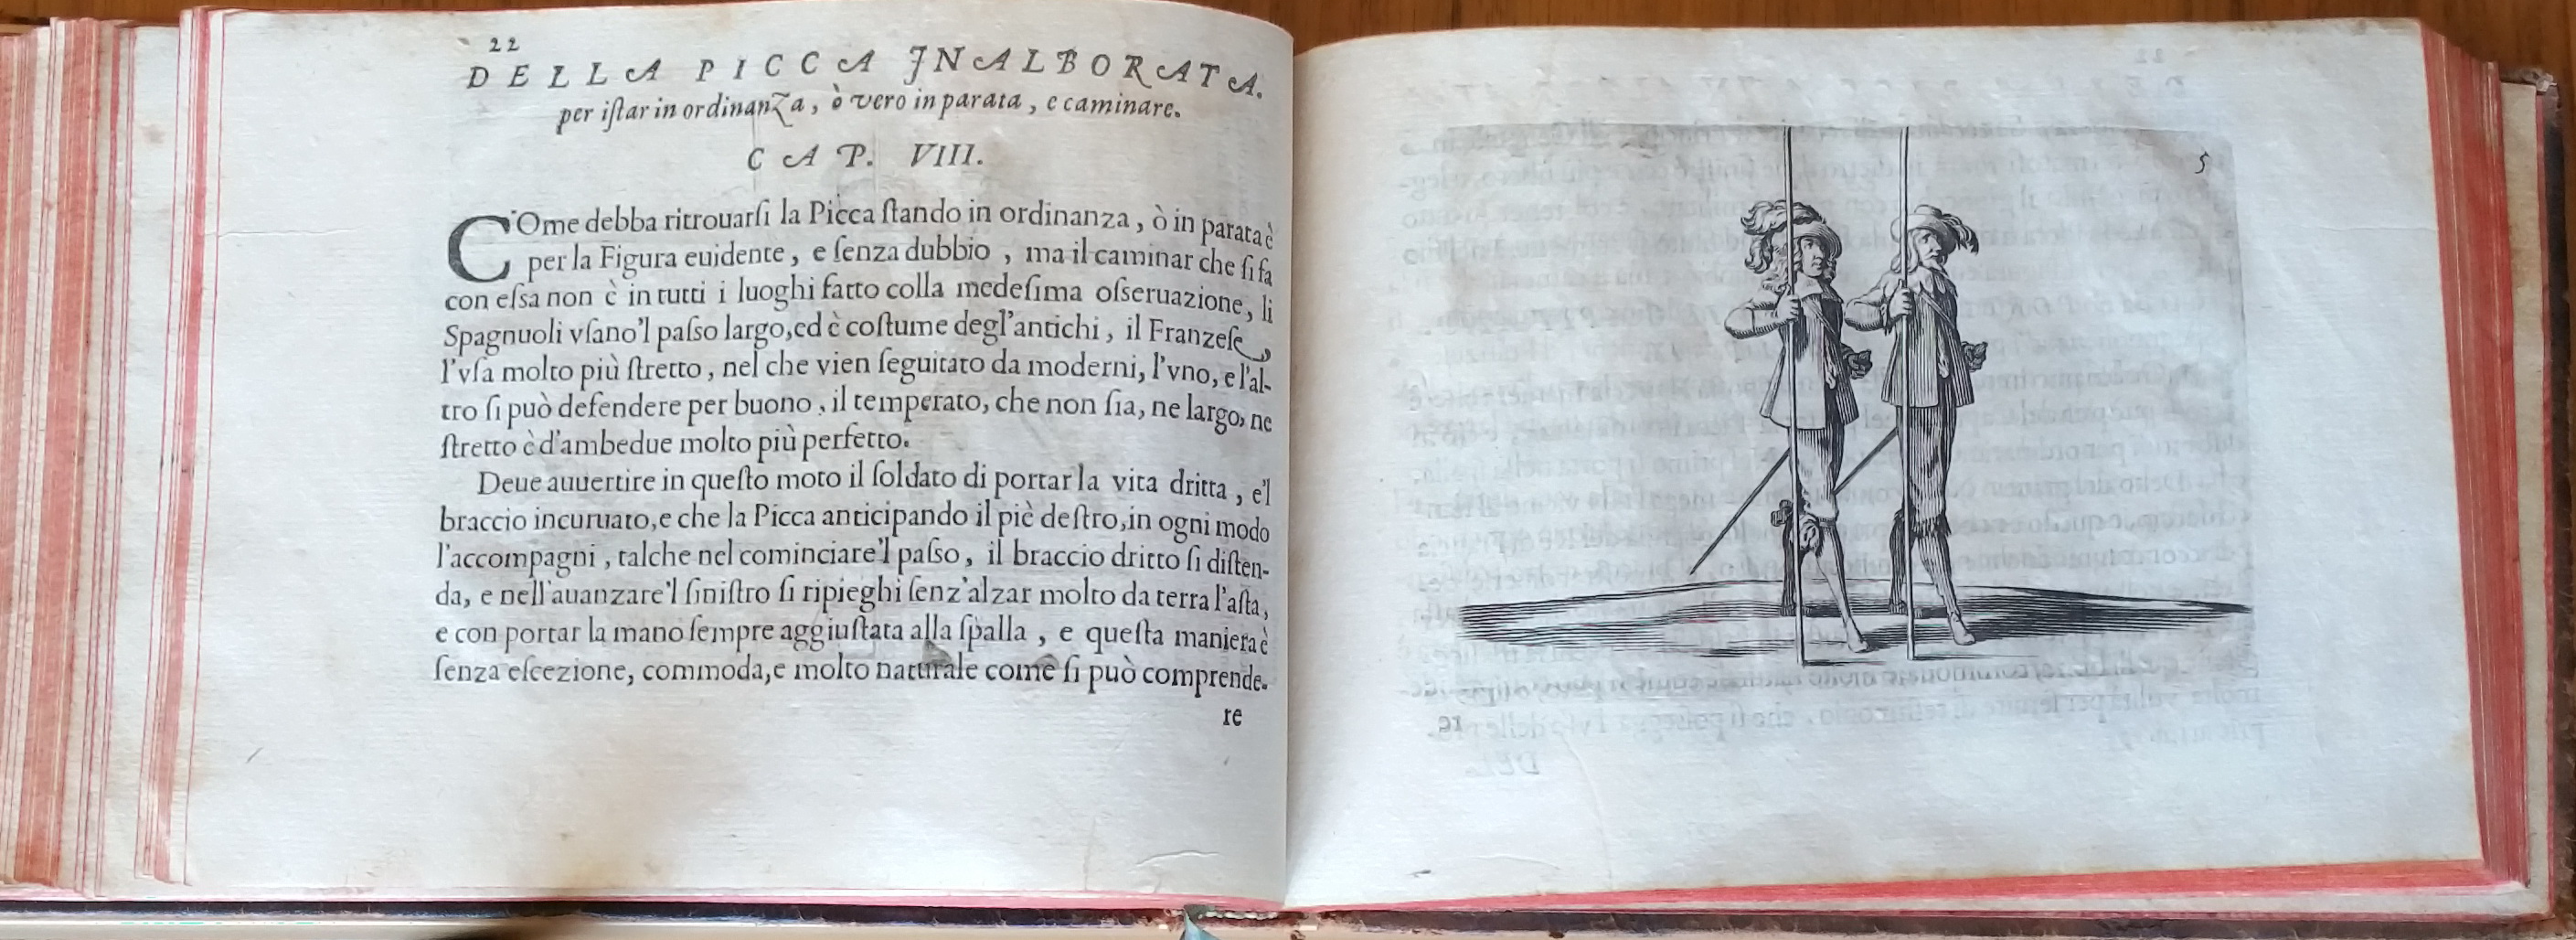 22
DELLA PICCA JNALBORATA.
per iſtar in ordinanza, ò vero in parata, e caminare.
CAP. VIII.
COme debba ritrouarſi la Picca ſtando in ordinanza, ò in parata è
per la Figura euidente, e ſenza dubbio, ma il caminar che ſi fa
con eſsa non è in tutti i luoghi fatto colla medeſima oſseruazione, li
Spagnuoli vſano'l paſso largo, ed è coſtume degl'antichi, il Franzeſe,
l'vſa molto più ſtretto, nel che vien ſeguitato da moderni, l'vno, e l'al-
tro ſi può defendere per buono, il temperato, che non ſia, ne largo, ne
ſtretto è d'ambedue molto più perfetto.
Deue auuertire in queſto moto il ſoldato di portar la vita dritta, e'l
braccio incuruato, e che la Picca anticipando il piè deſtro, in ogni modo
l'accompagni, talche nel cominciare'l paſso, il braccio dritto ſi diſten-
da, e nell'auanzare'l ſiniſtro ſi ripieghi ſenz'alzar molto da terra l'aſta,
e con portar la mano ſempre aggiuſtata alla ſpalla, e queſta maniera è
ſenza eſcezione, commoda, e molto naturale come ſi può comprende-
re
5